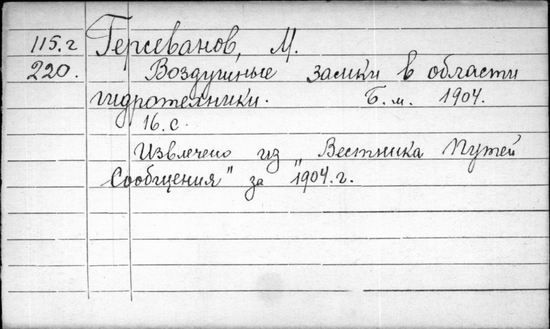 115.г Герсеванов, М.
220. Воздушные замки в области
гидротехники. Б. м. 1904.
16. с.
Извлечено из „Вестника Путей
Сообщения" за 1904. г.